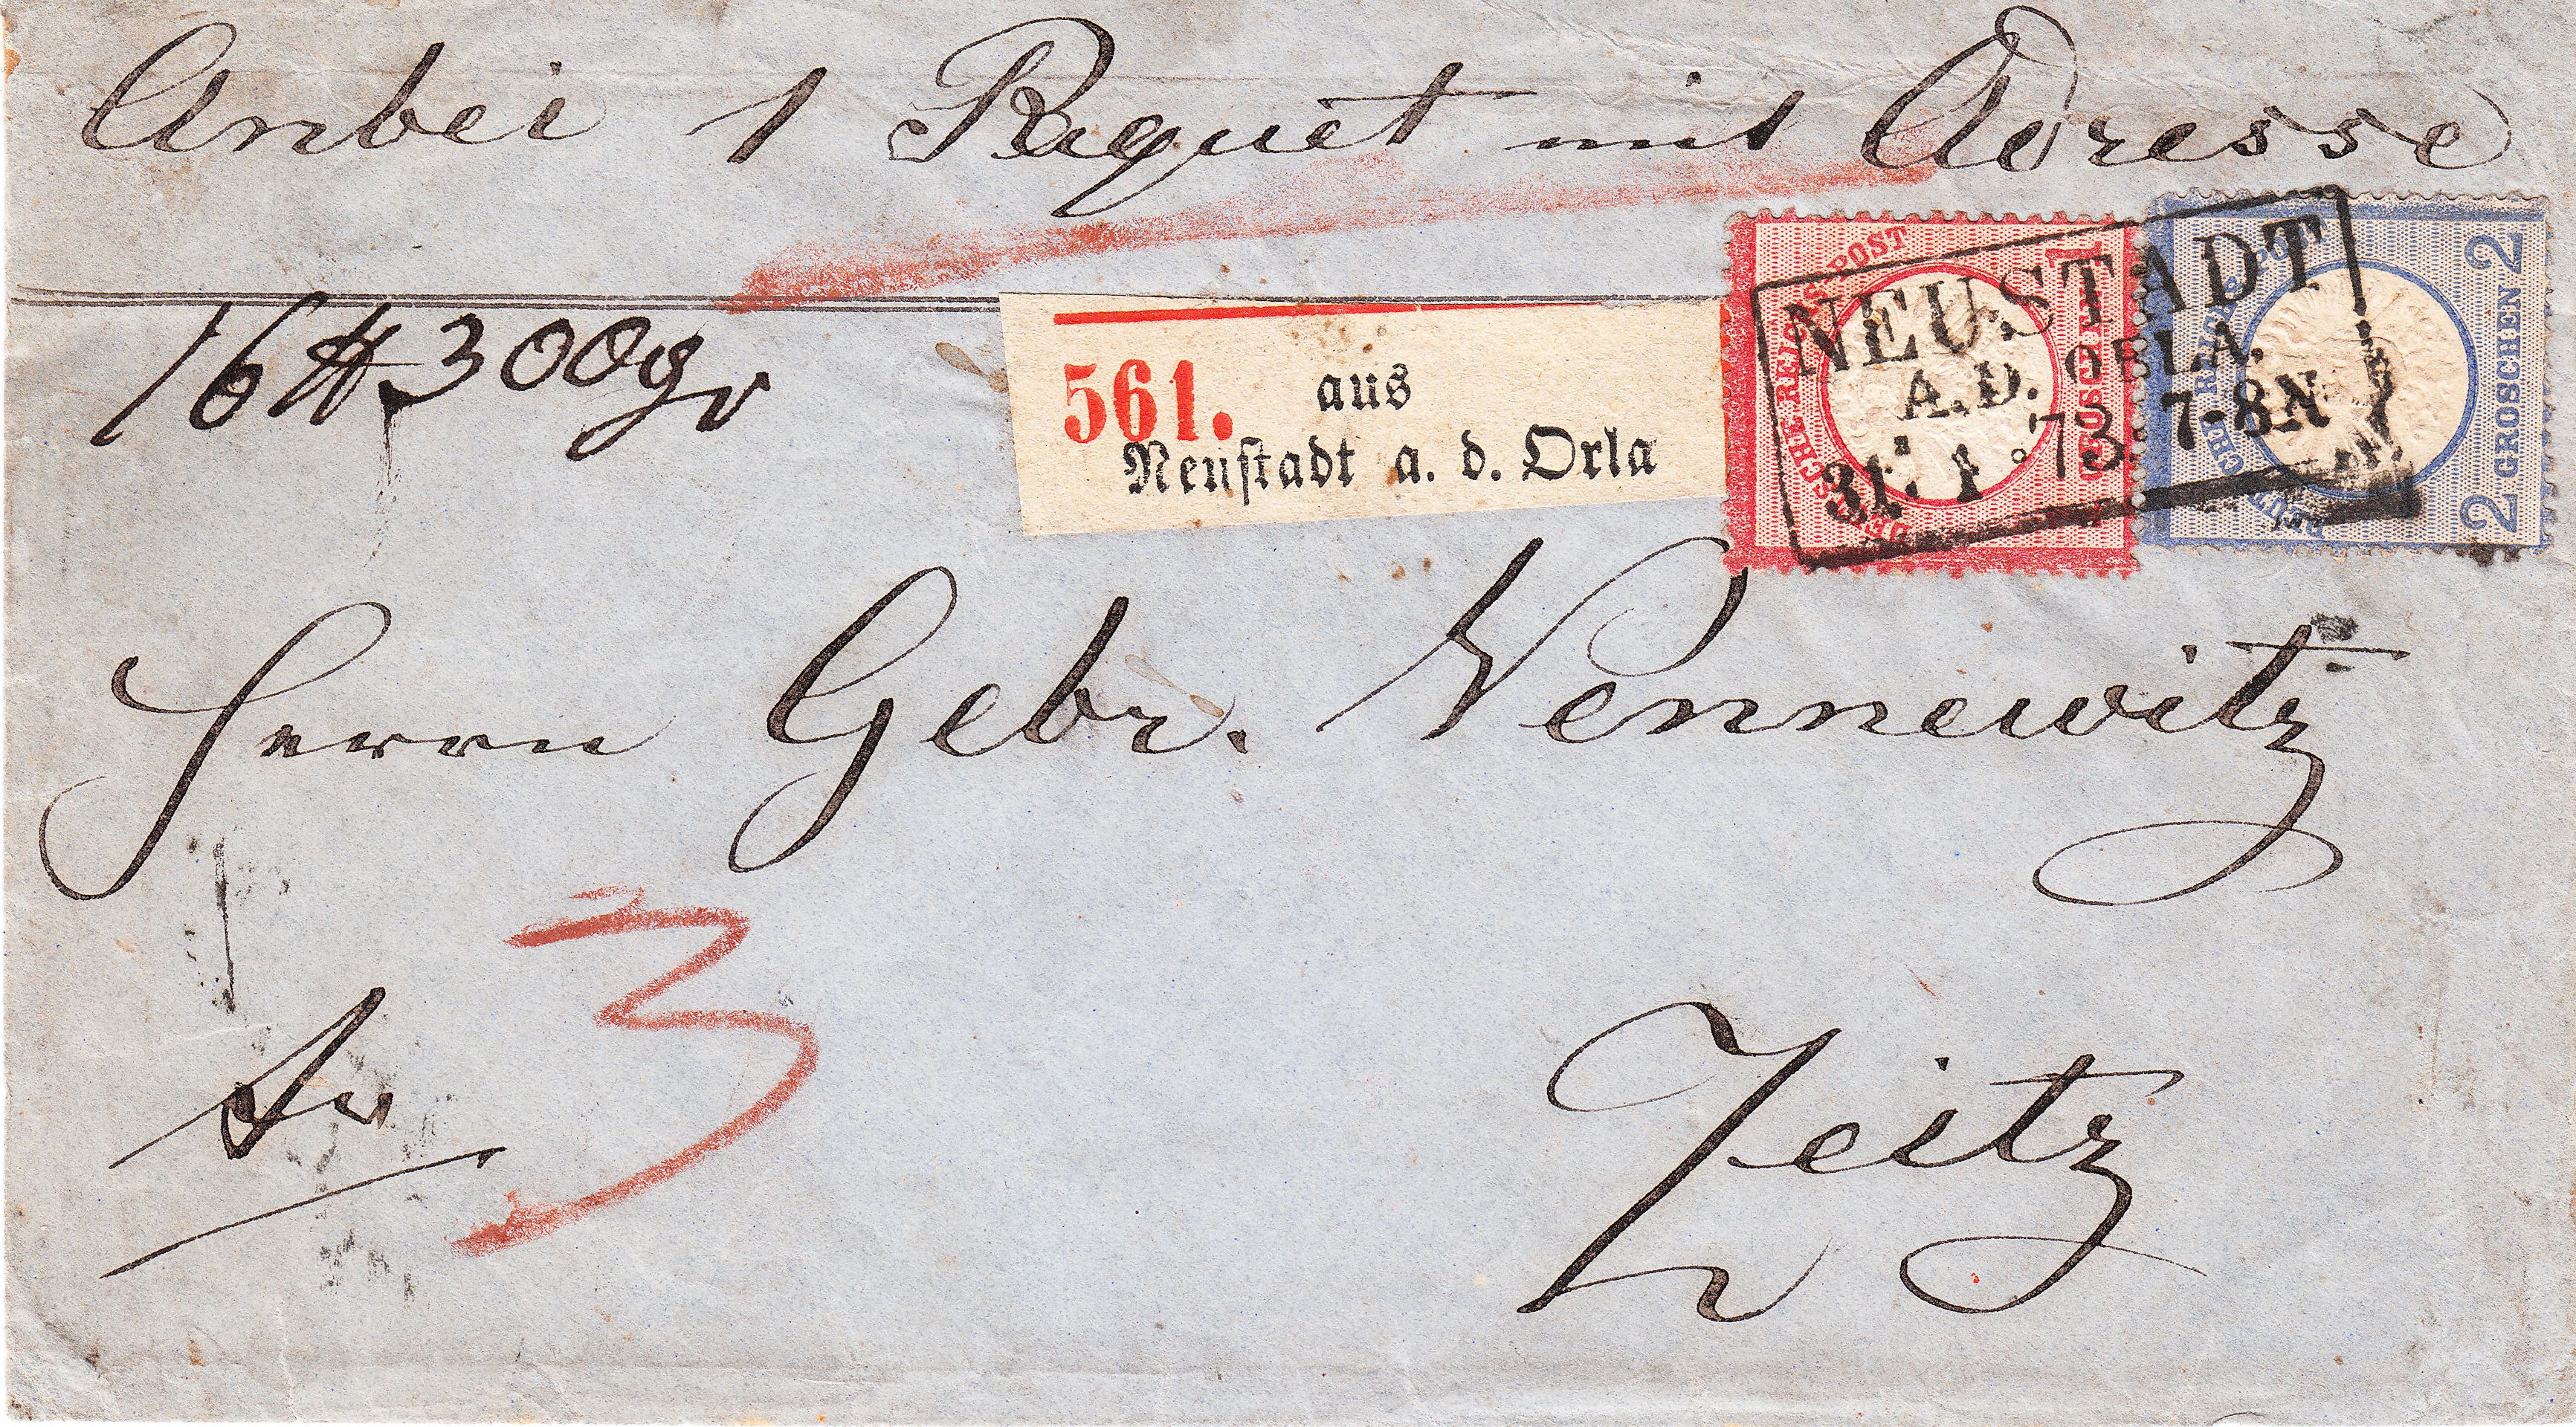 Anbei 1 Paquet mit Adresse
16 ℔ 300 gr
561. aus
Neustadt a. d. Orla
DEUTSCHE REICHS-POST
1 GROSCHEN 1
DEUTSCHE REICHS-POST
2 GROSCHEN 2
NEUSTADT
A.D. ORLA.
31. 1. 73. 7-8N
Herrn Gebr. Nennewitz
3
Zeitz